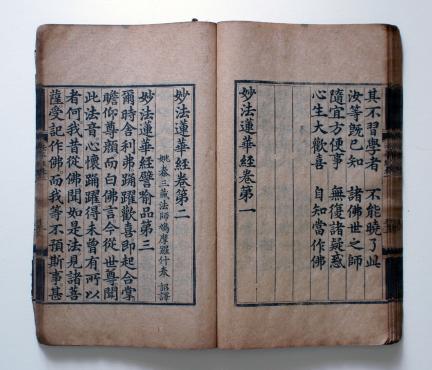 其不習學者　不能曉了此
汝等既已知　諸佛世之師
隨宜方便事　無復諸疑惑
心生大歡喜　自知當作佛
妙法蓮華經卷第一
妙法蓮華經卷第二
姚秦三藏法師鳩摩羅什奉　詔譯
妙法蓮華經譬喻品第三
爾時舍利弗踊躍歡喜即起合掌
瞻仰尊顏而白佛言今從世尊聞
此法音心懷踊躍得未曾有所以
者何我昔從佛聞如是法見諸菩
薩受記作佛而我等不預斯事甚